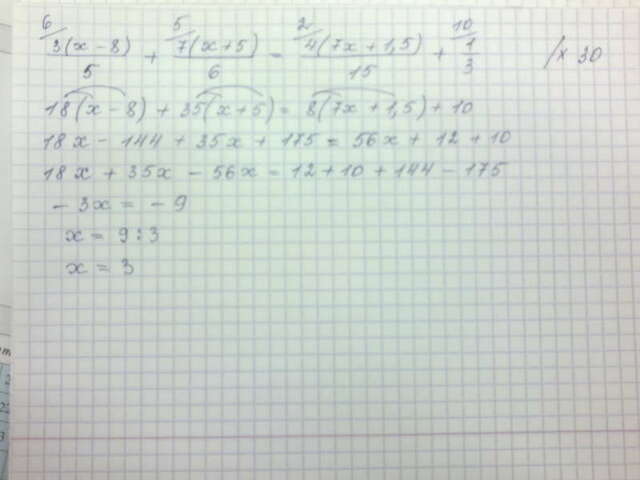 6/ 3(x-8)/5 + 5/ 7(x+5)/6 = 2/ 4(7x+1,5)/15 + 10/ 1/3 /x 30
18(x-8) + 35(x+5) = 8(7x+1,5) + 10
18x - 144 + 35x + 175 = 56x + 12 + 10
18x + 35x - 56x = 12 + 10 + 144 - 175
-3x = -9
x = 9:3
x = 3